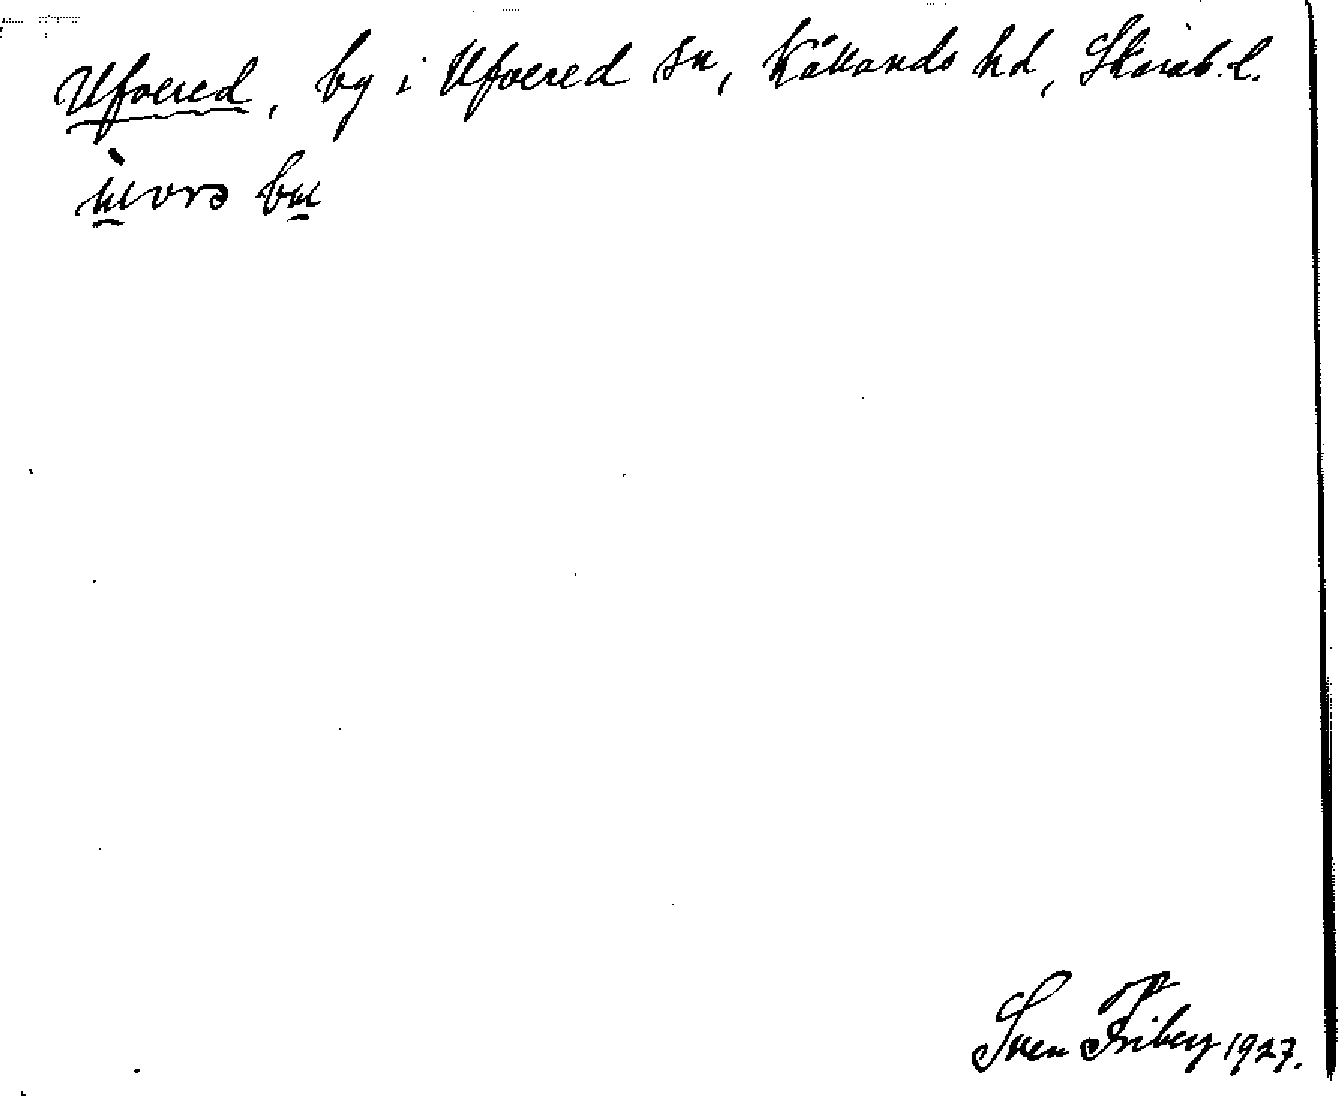 Ufvered, by i Ufvered sn, Kållands hd, Skarab. l.
Sven Friberg 1927.